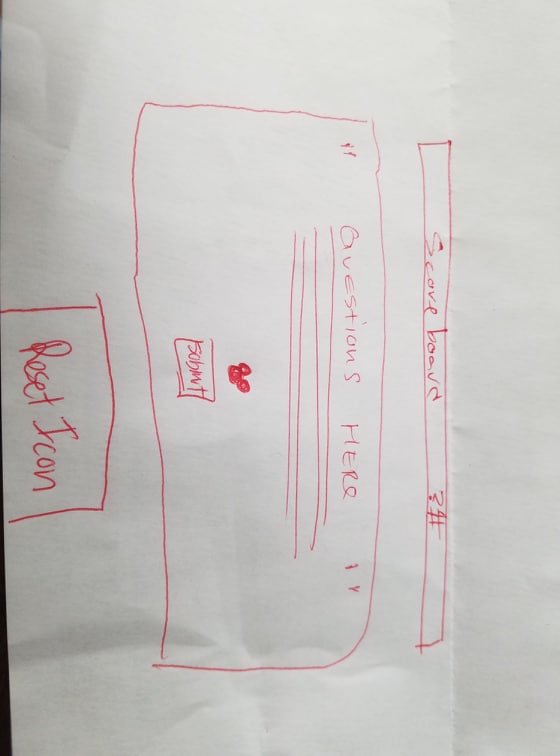 Score board ?#
" Questions HERE "
Submit
Reset Icon